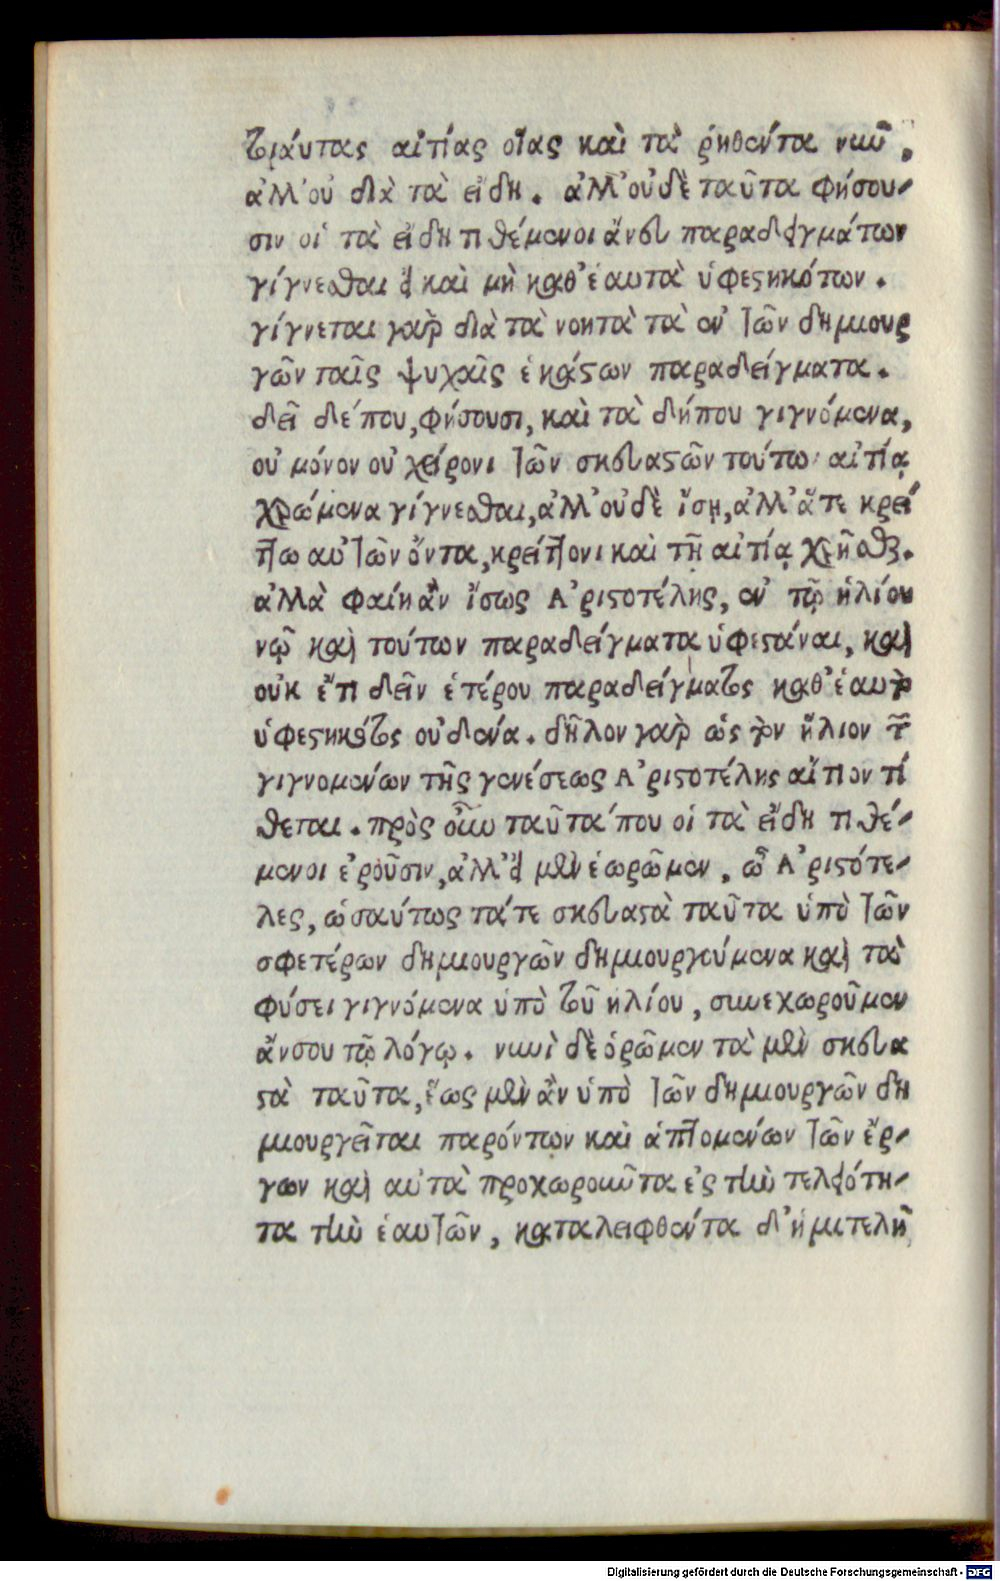 τοιαύτας αἰτίας οἵας καὶ τὰ ῥηθέντα νῦν,
ἀλλ' οὐ διὰ τὰ εἴδη. ἀλλ' οὐδὲ ταῦτα φήσου-
σιν οἱ τὰ εἴδη τιθέμενοι ἄνευ παραδειγμάτων
γίγνεσθαι εἰ καὶ μὴ καθ' ἑαυτὰ ὑφεστηκότων.
γίγνεται γὰρ διὰ τὰ νοητὰ τὰ ἐν τῶν δημιουρ
γῶν ταῖς ψυχαῖς ἑκάστων παραδείγματα.
δεῖ δέ που, φήσουσι, καὶ τὰ δήπου γιγνόμενα,
οὐ μόνον οὐ χείρονι τῶν σκευαστῶν τούτω αἰτίᾳ
χρώμενα γίγνεσθαι, ἀλλ' οὐδὲ ἴσῃ, ἀλλ' ἅτε κρεί
ττω αὐτῶν ὄντα, κρείττονι καὶ τῇ αἰτίᾳ χρῆσθαι.
ἀλλὰ φαίη ἂν ἴσως Ἀριστοτέλης, ἐν τῷ ἡλίου
νῷ καὶ τούτων παραδείγματα ὑφεστάναι, καὶ
οὐκ ἔτι δεῖν ἑτέρου παραδείγματος καθ' ἑαυτὸ
ὑφεστηκότος οὐδενά. δῆλον γὰρ ὡς τὸν ἥλιον τῶν
γιγνομενέων τῆς γενέσεως Ἀριστοτέλης αἴτιον τί
θεται. πρὸς οὖν ταῦτα που οἱ τὰ εἴδη τιθέ-
μενοι ἐροῦσιν, ἀλλ' εἰ μὲν ἑωρῶμεν, ὦ Ἀριστότε-
λες, ὡσαύτως τά τε σκευαστὰ ταῦτα ὑπὸ τῶν
σφετέρων δημιουργῶν δημιουργούμενα καὶ τὰ
φύσει γιγνόμενα ὑπὸ τοῦ ἡλίου, συνεχωροῦμεν
ἄν σου τῷ λόγῳ. νυνὶ δὲ ὁρῶμεν τὰ μὲν σκευα
στὰ ταῦτα, ἕως μὲν ἂν ὑπὸ τῶν δημιουργῶν δη
μιουργεῖται παρόντων καὶ ἁπτομενέων τῶν ἔρ-
γων καὶ αὐτὰ προχωροῦντα ἐς τὴν τελειότη-
τα τὴν ἑαυτῶν, καταλειφθέντα δ' ἡμιτελῆ